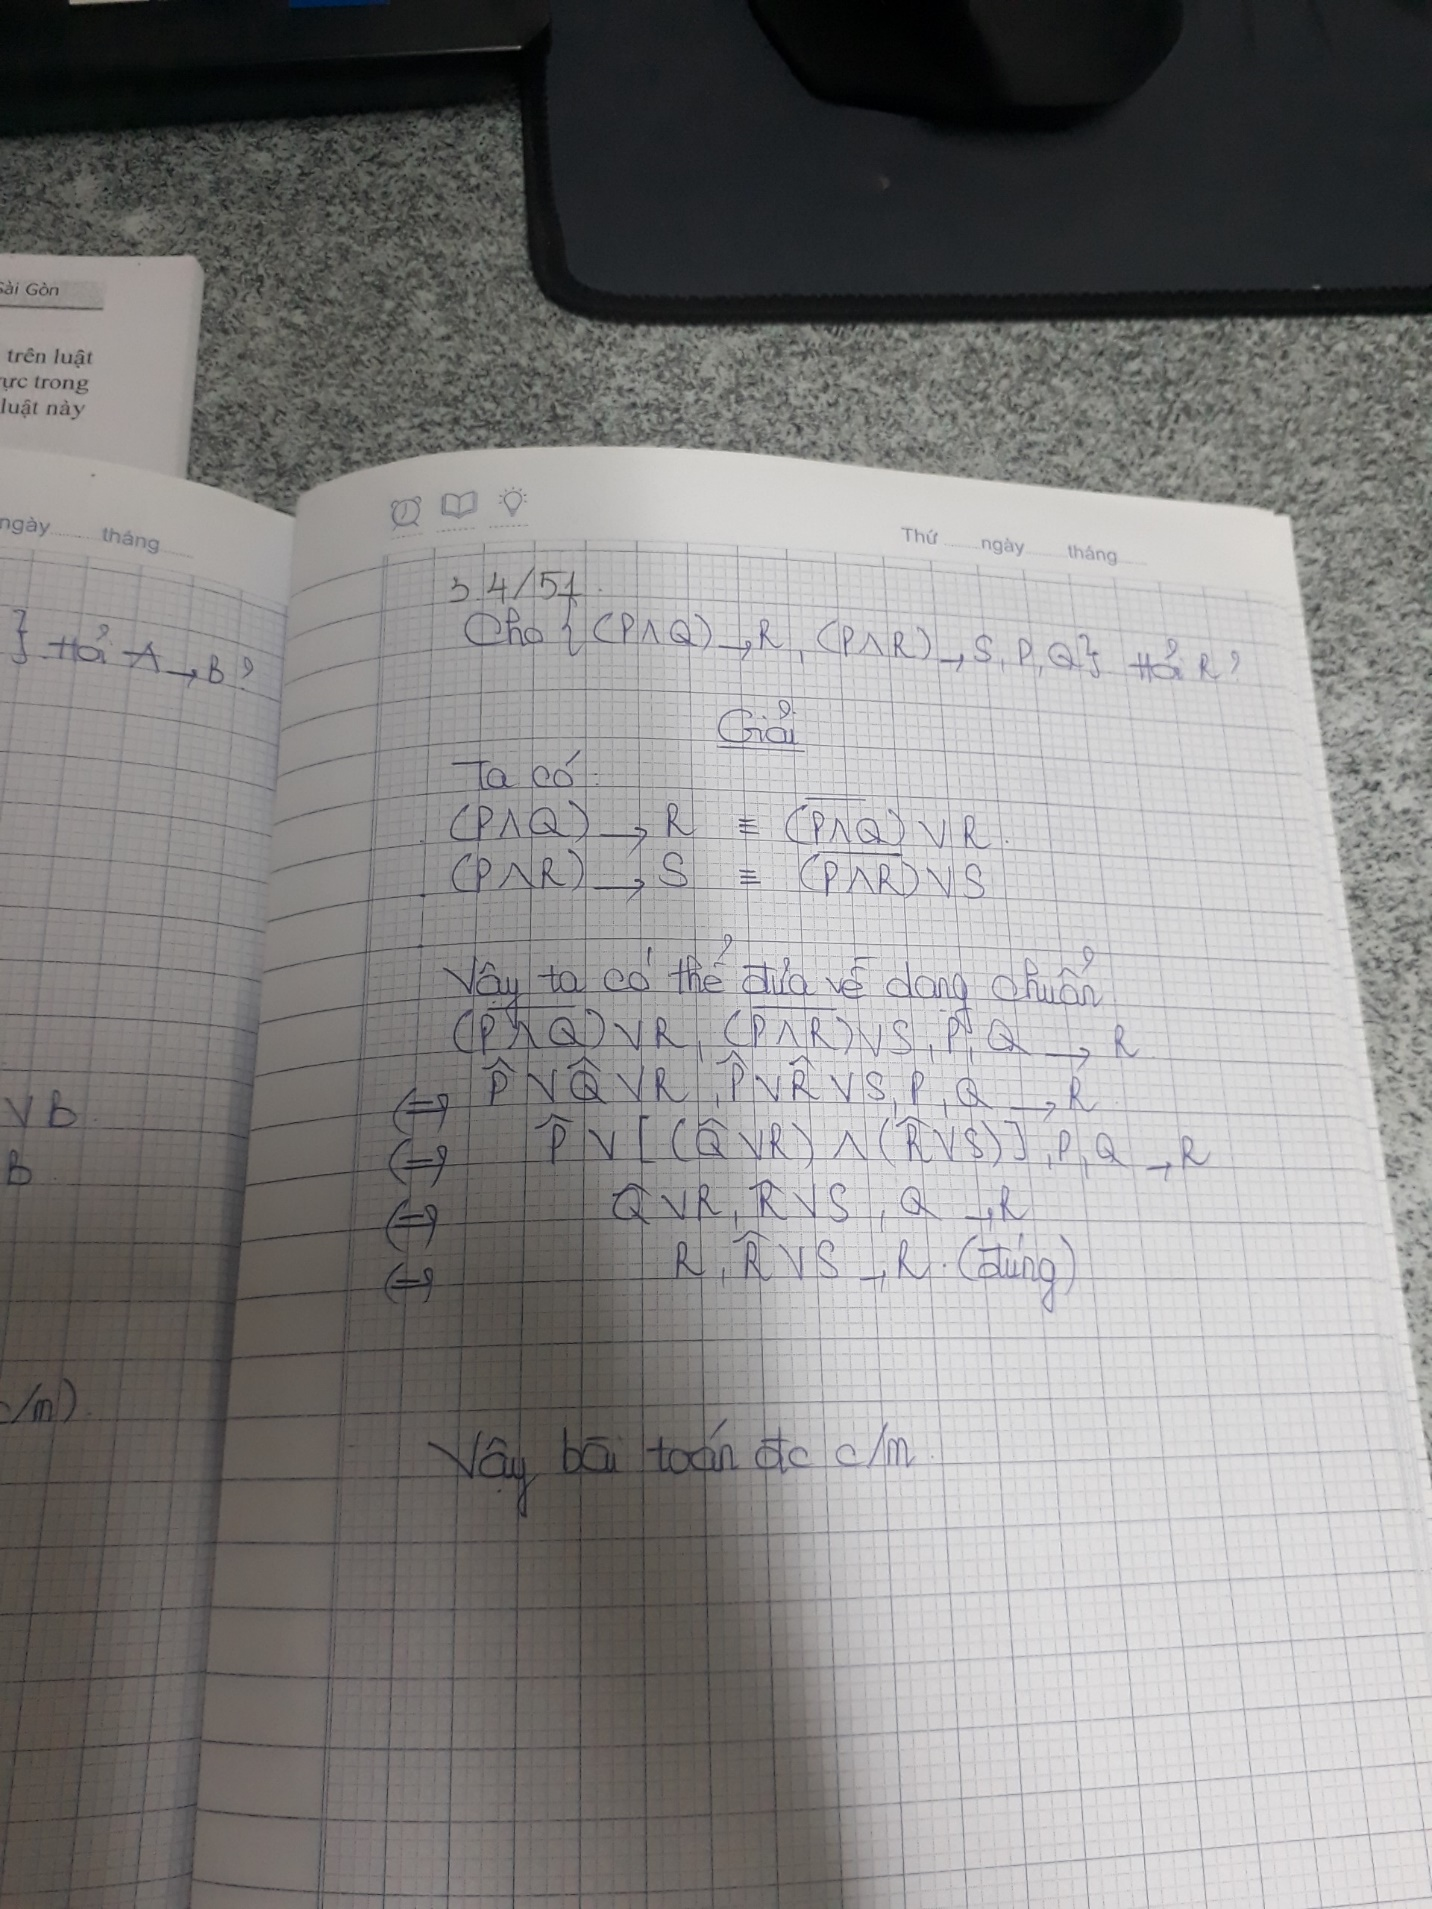 Sài Gòn
trên luật
ực trong
luật này
ngày tháng
} Hỏi A → B?
V B
B
c/m)
Thứ ngày tháng
3.4/51.
Cho {(P∧Q) → R, (P∧R) → S, P, Q} Hỏi R?
Giải
Ta có:
(P∧Q) → R ≡ (P̅∧̅Q̅) ∨ R.
(P∧R) → S ≡ (P̅∧̅R̅) ∨ S
Vậy ta có thể đưa về dạng chuẩn
(P̅∧̅Q̅) ∨ R, (P̅∧̅R̅) ∨ S, P, Q → R
⇔ P̅ ∨ Q̅ ∨ R, P̅ ∨ R̅ ∨ S, P, Q → R
⇔ P̅ ∨ [(Q̅ ∨ R) ∧ (R̅ ∨ S)], P, Q → R
⇔ Q̅ ∨ R, R̅ ∨ S, Q → R
⇔ R, R̅ ∨ S → R. (đúng)
Vậy bài toán đc c/m.